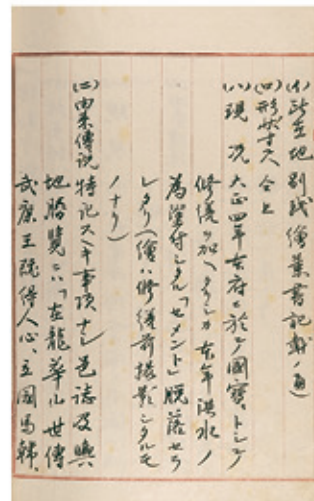 (イ)所在地 別紙繪葉書記載ノ通
(ロ)形狀寸尺 仝上
(ハ)現況 大正四年本府ニ於テ國寶トシテ
修繕ヲ加ヘタリシカ本年洪水ノ
為塗付シタル「セメント」脫落セラ
レタリ(繪ハ修繕前撮影シタルモ
ノナリ)
(ニ)由来傳說 特記スヘキ事項ナシ邑誌及輿
地勝覽ニハ「在龍華山世傳
武康王旣得人心、立國馬韓、